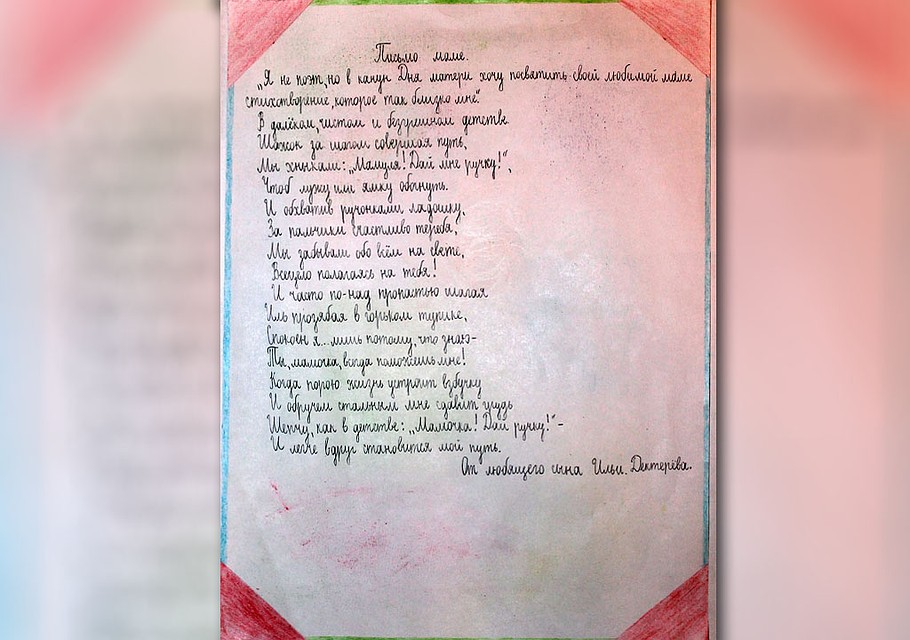 Письмо маме.
„Я не поэт, но в канун Дня матери хочу посвятить своей любимой маме
стихотворение, которое так близко мне“.
В далёком, чистом и безгрешном детстве
Шажок за шагом совершая путь,
Мы хныкали: „Мамуля! Дай мне ручку!“,
Чтоб лужу или ямку обогнуть.
И обхватив ручонками ладошку,
За пальчики счастливо теребя,
Мы забывали обо всём на свете,
Всецело полагаясь на тебя!
И часто по-над пропастью шагая
Иль прозябая в горьком тупике,
Спокоен я... лишь потому, что знаю-
Ты, мамочка, всегда поможешь мне!
Когда порою жизнь устроит взбучку
И обручем стальным мне сдавит грудь
Шепчу, как в детстве: „Мамочка! Дай ручку!“-
И легче вдруг становится мой путь.
От любящего сына Ильи. Дектерёва.